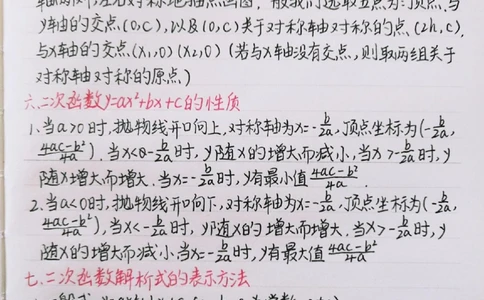 轴两侧,左右对称地描点画图.一般我们选取五点为:顶点、与
y轴的交点(0,c),以及(0,c)关于对称轴对称的点(2h,c).
与x轴的交点(x₁,0)(x₂,0)(若与x轴没有交点,则取两组关于
对称轴对称的原点)
六、二次函数y=ax²+bx+c的性质
1.当a>0时,抛物线开口向上,对称轴为x=-b/2a,顶点坐标为(-b/2a,
4ac-b²/4a).当x<-b/2a时,y随x的增大而减小,当x>-b/2a时,y
随x增大而增大.当x=-b/2a时,y有最小值4ac-b²/4a.
2.当a<0时,抛物线开口向下,对称轴为x=-b/2a,顶点坐标为(-b/2a,
4ac-b²/4a),当x<-b/2a时,y随x的增大而增大.当x>-b/2a时,y
随x的增大而减小,当x=-b/2a时,y有最大值4ac-b²/4a
七、二次函数解析式的表示方法